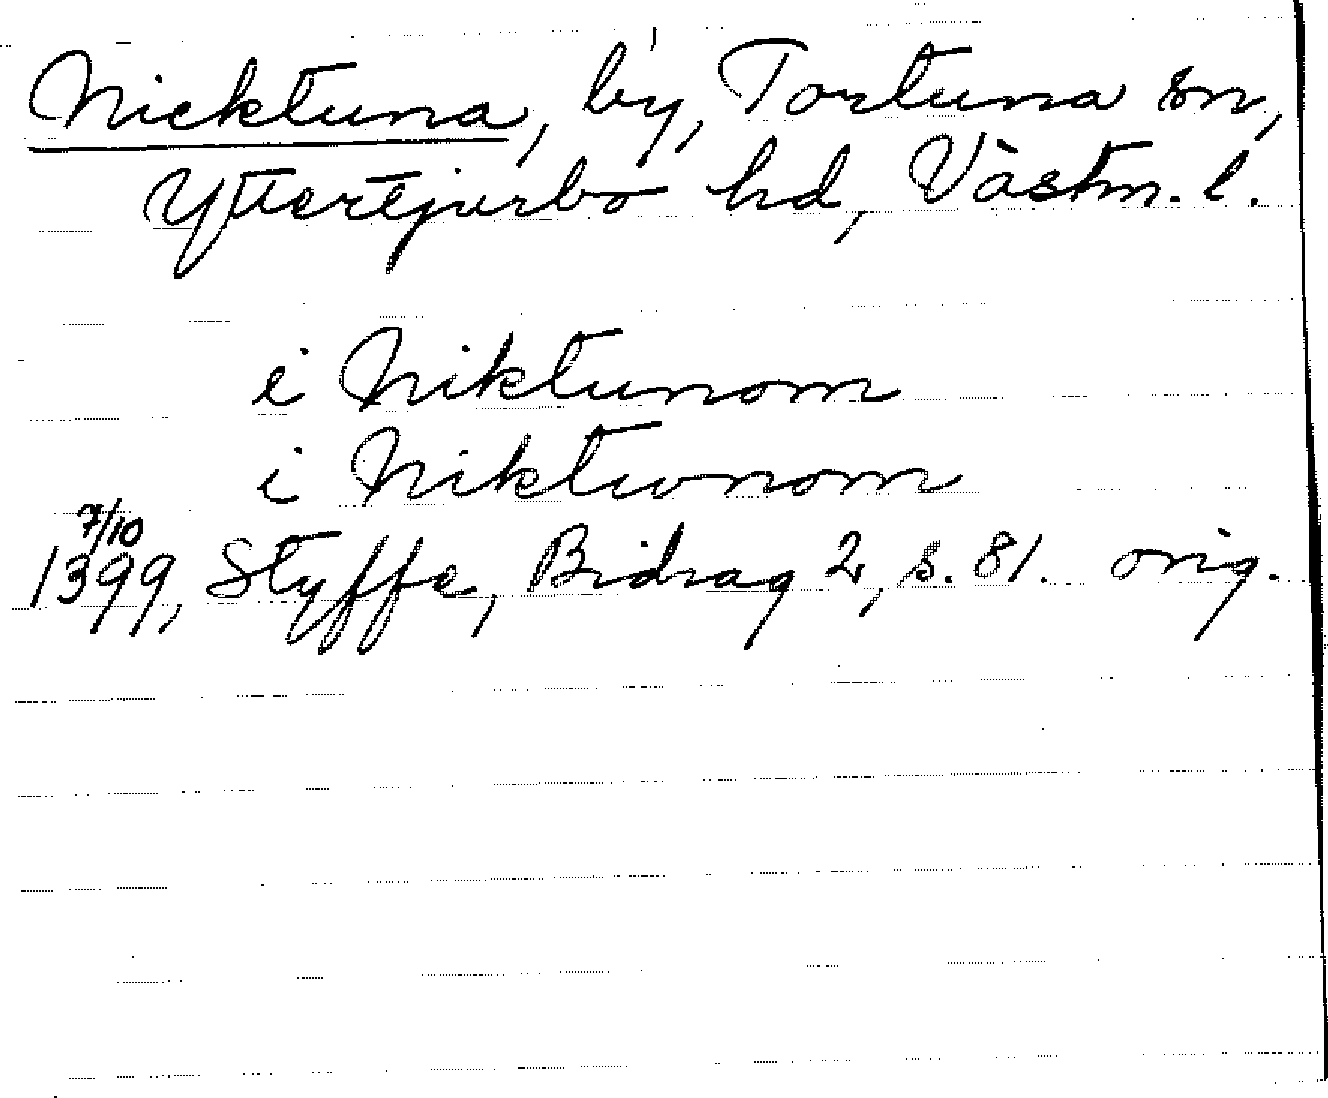 Nicktuna, by, Tortuna sn,
Yttertjurbo hd, Västm. l.
i Niktunom
i Niktwnom
7/10
1399, Styffe, Bidrag 2, s. 81. orig.